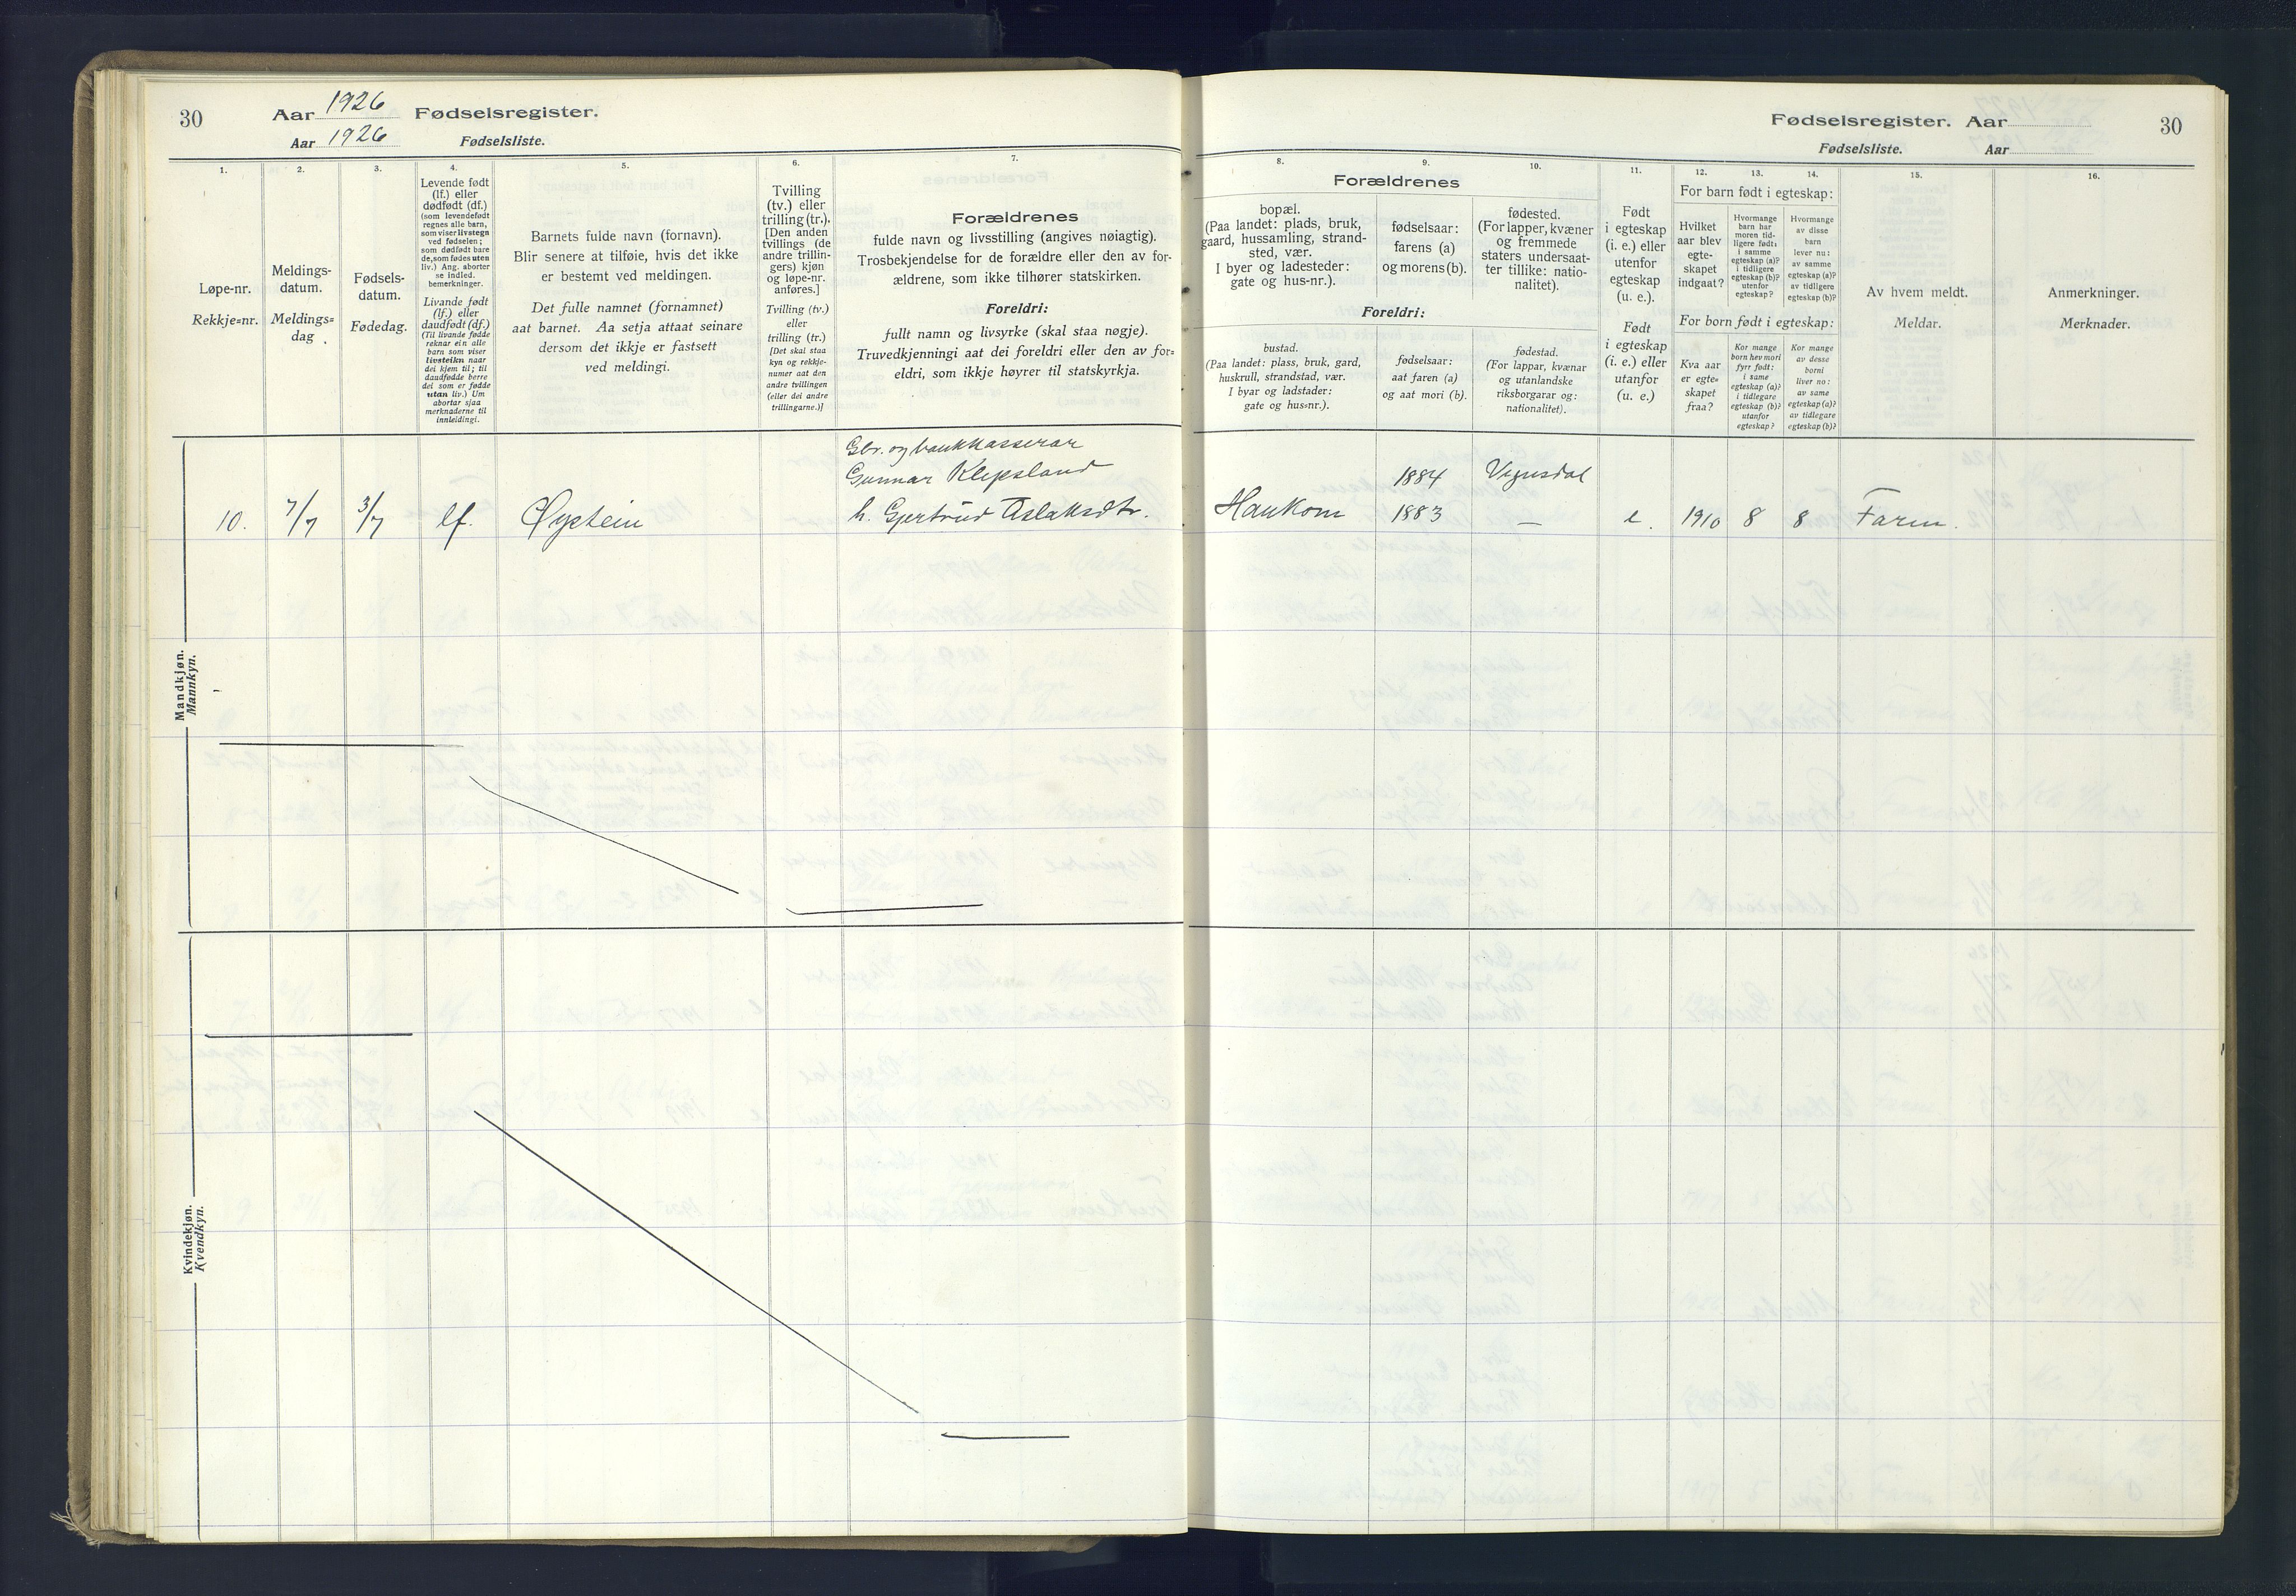 30
Aar 1926 Fødselsregister.
Aar 1926 Fødselsliste.
1.
Løpe-nr.
Rekkje=nr.
2.
Meldings-
datum.
Meldings=
dag
3.
Fødsels-
datum.
Fødedag.
4.
Levende født
(lf.) eller
dødfødt (df.)
(som levendefødt
regnes alle barn,
som viser livstegn
ved fødselen;
som dødfødt bare
de, som fødes uten
liv.) Ang. aborter
se indled.
bemerkninger.
Livande født
(lf.) eller
daudfødt (df.)
(Til livande fødde
reknar ein alle
barn som viser
livsteikn naar
dei kjem til; til
daudfødde berre
dei som er fødde
utan liv.) Um
abortar sjaa
merknaderne til
innleidingi.
5.
Barnets fulde navn (fornavn).
Blir senere at tilføie, hvis det ikke
er bestemt ved meldingen.
Det fulle namnet (fornamnet)
aat barnet. Aa setja attaat seinare
dersom det ikkje er fastsett
ved meldingi.
6.
Tvilling
(tv.) eller
trilling (tr.).
[Den anden
tvillings (de
andre trillin-
gers) kjøn
og løpe-nr.
anføres.]
Tvilling (tv.)
eller
trilling (tr.)
[Det skal staa
kyn og rekkje-
numer aat den
andre tvillingen
(eller dei andre
trillingarne.)]
7.
Forældrenes
fulde navn og livsstilling (angives nøiagtig).
Trosbekjendelse for de forældre eller den av for-
ældrene, som ikke tilhører statskirken.
Foreldri:
fullt namn og livsyrke (skal staa nøgje).
Truvedkjenningi aat dei foreldri eller den av for=
eldri, som ikkje høyrer til statskyrkja.
Fødselsregister. Aar
30
Fødselsliste. Aar
8.
9.
10.
Forældrenes
bopæl.
(Paa landet: plads, bruk,
gaard, hussamling, strand-
sted, vær.
I byer og ladesteder:
gate og hus-nr.).
fødselsaar:
farens (a)
og morens (b).
fødested.
(For lapper, kvæner
og fremmede
staters undersaat-
ter tillike: natio-
nalitet).
Foreldri:
bustad.
(Paa landet: plass, bruk, gard,
huskrull, strandstad, vær.
I byar og ladstader:
gate og hus=nr.).
fødselsaar:
aat faren (a)
og aat mori (b).
fødestad.
(For lappar, kvænar
og utanlandske
riksborgarar og:
nationalitet).
11.
Født
i egteskap
(i. e.) eller
utenfor
egteskap
(u. e.).
Født
i egteskap
(i. e.) eller
utanfor
(u. e.)
12.
13.
14.
For barn født i egteskap:
Hvilket
aar blev
egte-
skapet
indgaat?
Hvormange
barn har
moren tid-
ligere født:
i samme
egteskap (a)?
i tidligere
egteskap (b)?
utenfor
egteskap?
Hvormange
av disse
barn
lever nu:
av samme
egteskap (a)?
av tidligere
egteskap (b)?
For born født i egteskap:
Kva aar
er egte=
skapet
fraa?
Kor mange
born hev mori
fyrr født:
i same
egteskap (a)?
i tidlegare
egteskap (b)?
utanfor
egteskap?
Kor mange
av desse
borni
liver no:
av same
egteskap (a)?
av tidlegare
egteskap (b)?
15.
Av hvem meldt.
Meldar.
16.
Anmerkninger.
Merknader.
Mandkjøn.
Mannkyn.
Gbr. og bankkasserar
Gunnar Klepsland 1884 Vegusdal
10. 7/7 3/7 lf. Øystein h. Gjertrud Aslaksdtr. Haukom 1883 — e. 1910 8 8 Faren.
Kvindekjøn.
Kvendkyn.